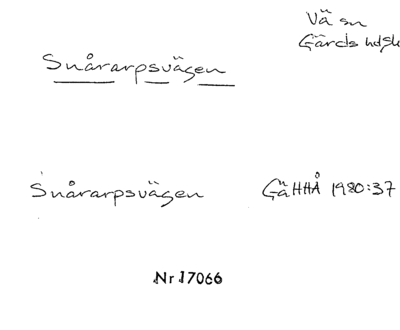 Vä sn
Gärds hdsk
Snårarpsvägen
Snårarpsvägen GäHHÅ 1980:37
Nr 17066